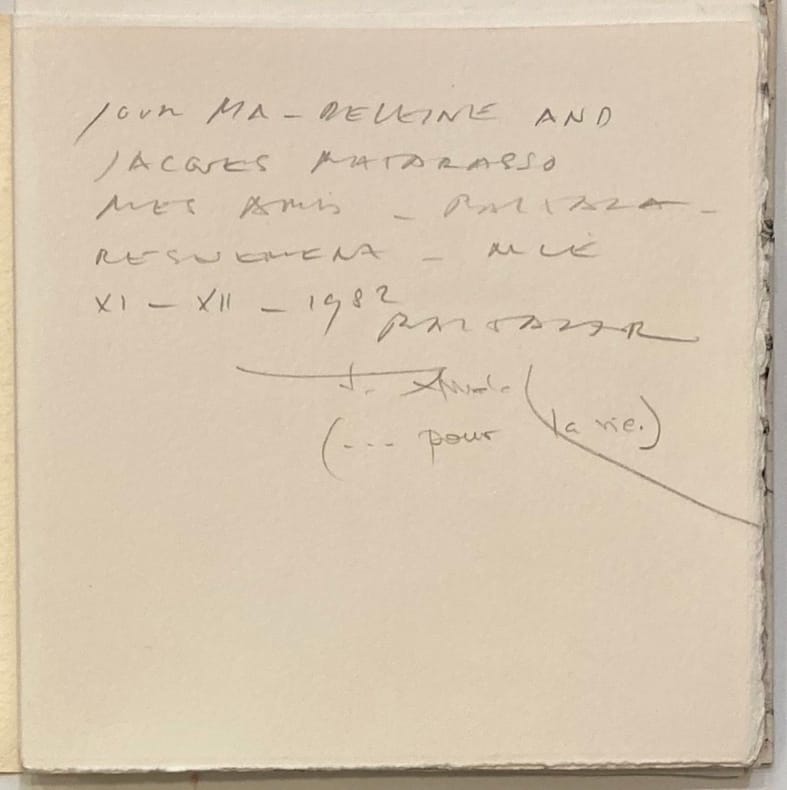 POUR MA-DELEINE AND
JACQUES MATARASSO
MES AMIS - BALTAZA-
RESQUEMENT - NICE
XI - XII - 1982
BALTAZAR
J.
(--- pour la vie.)